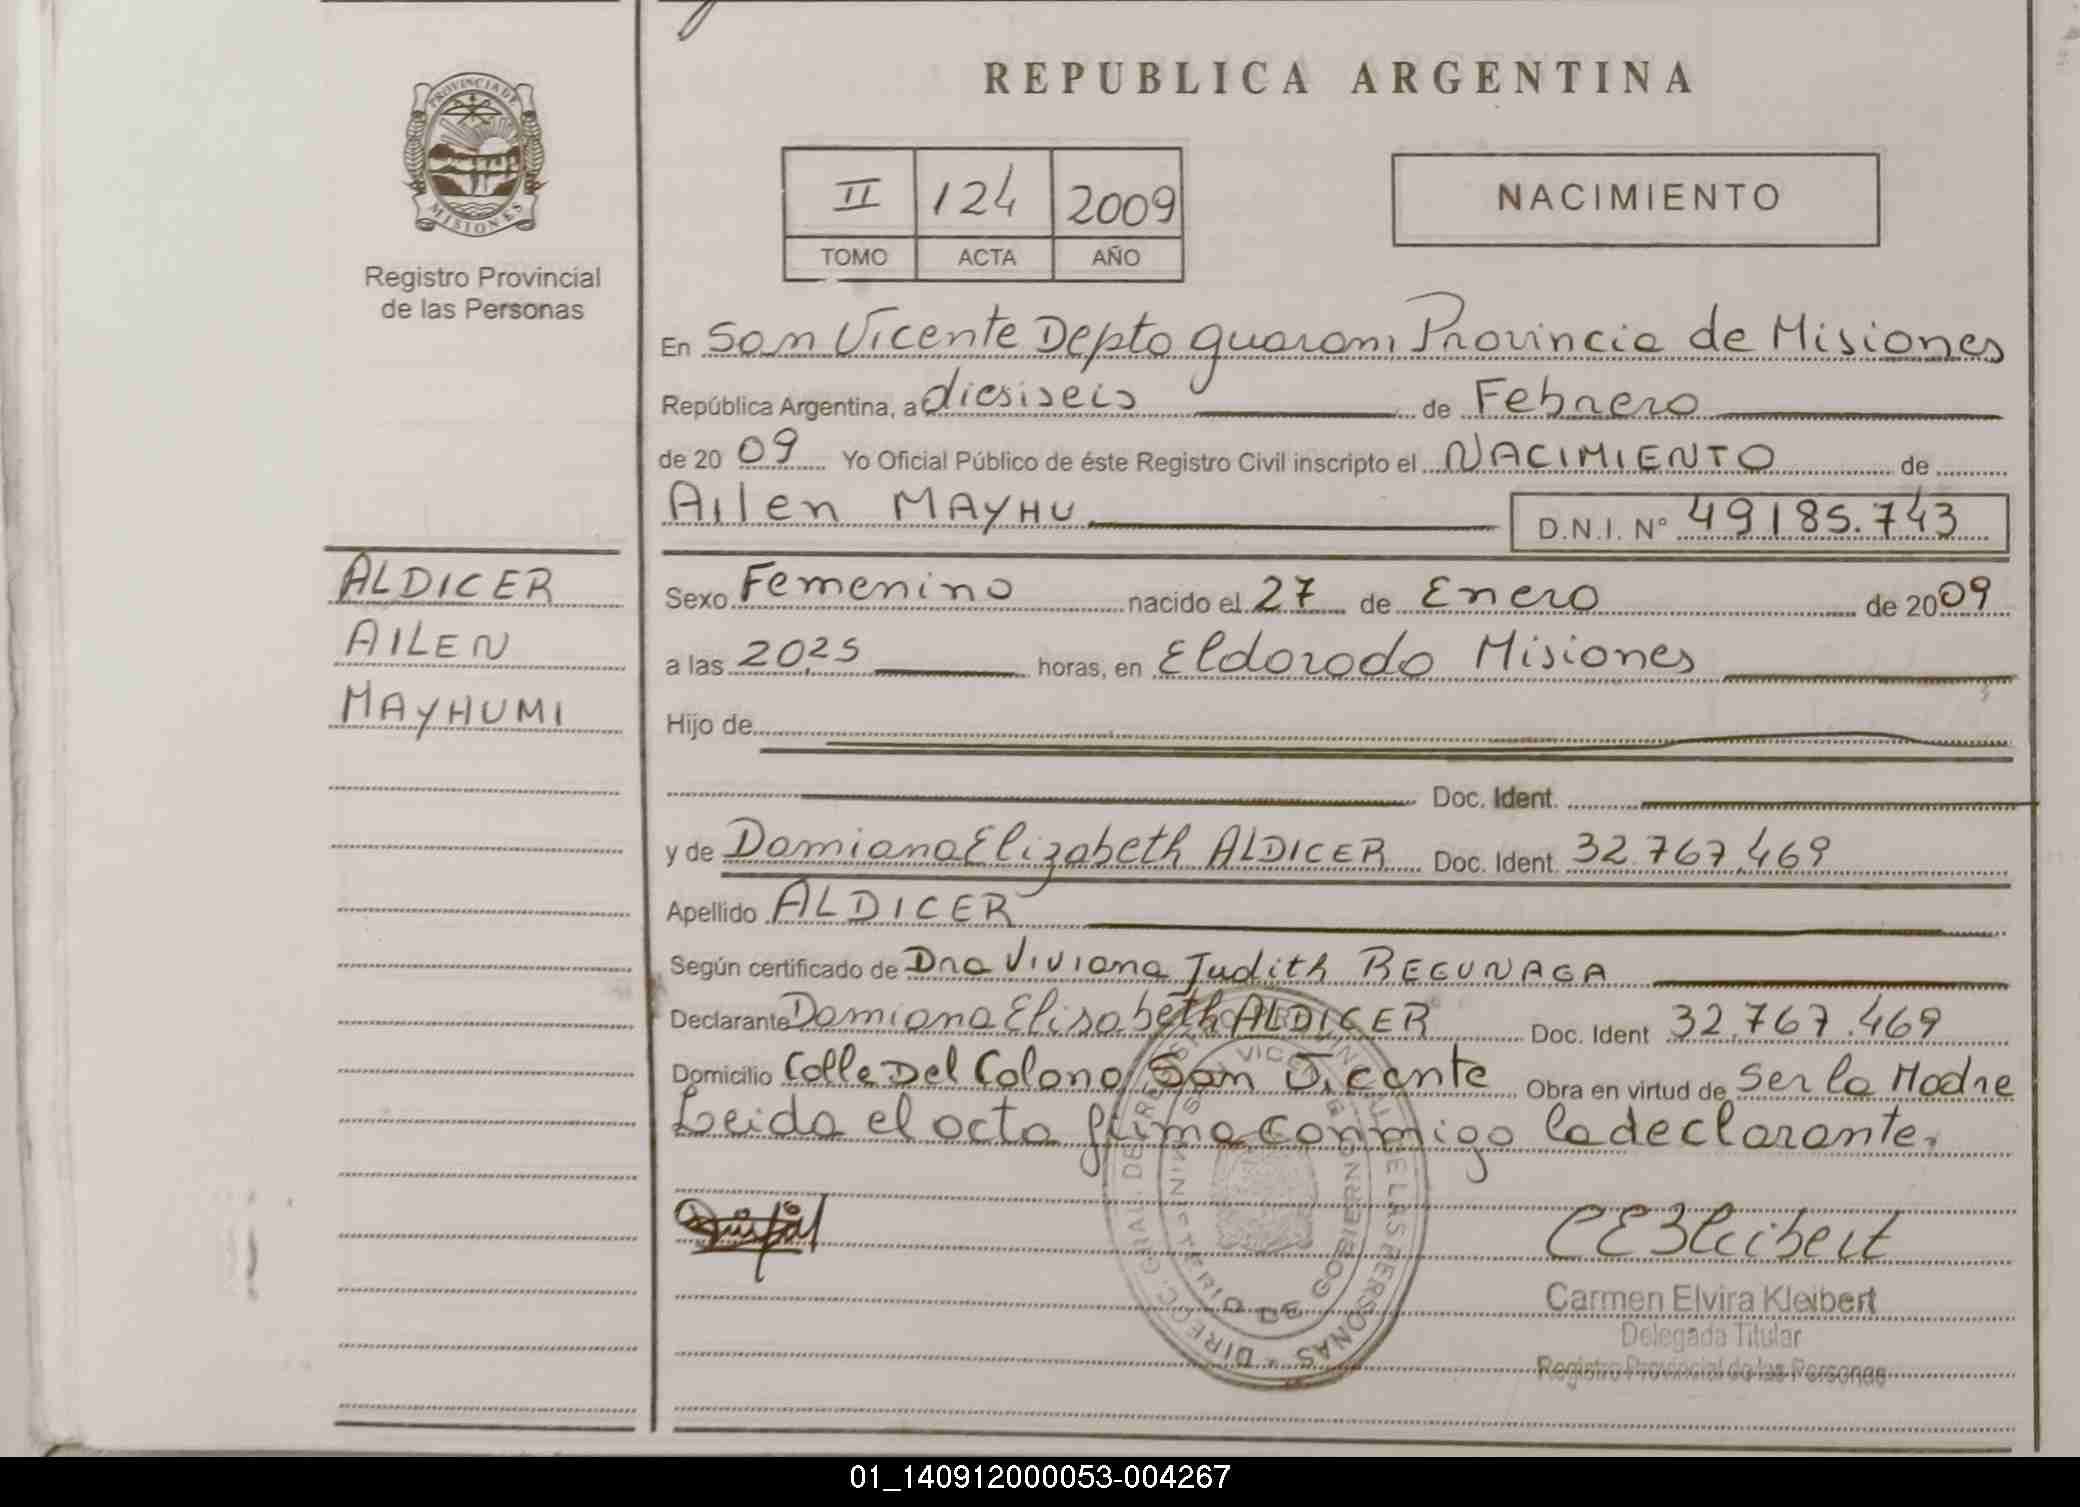 REPUBLICA ARGENTINA
PROVINCIA DE
MISIONES
Registro Provincial
de las Personas
II 124 2009
TOMO ACTA AÑO
NACIMIENTO
En San Vicente Depto guarani Provincia de Misiones
República Argentina, a diesiseis de Febrero
de 20 09 Yo Oficial Público de éste Registro Civil inscripto el NACIMIENTO de
Ailen MAYHU D.N.I. Nº 49185.743
ALDICER
AILEN
MAYHUMI
Sexo Femenino nacido el 27 de Enero de 2009
a las 20,25 horas, en Eldorado Misiones
Hijo de
Doc. Ident.
y de Damiana Elizabeth ALDICER Doc. Ident. 32.767.469
Apellido ALDICER
Según certificado de Dra Viviana Judith REGUNAGA
Declarante Damiana Elisabeth ALDICER Doc. Ident 32.767.469
Domicilio Calle Del Colono San Vicente Obra en virtud de Ser la Madre
Leida el acta firma conmigo la declarante.
DIREC. GRAL. DEL REGISTRO PROVINCIAL DE LAS PERSONAS
MINISTERIO DE GOBIERNO
SAN VICENTE
CEKleibert
Carmen Elvira Kleibert
Delegada Titular
Registro Provincial de las Personas
01_140912000053-004267